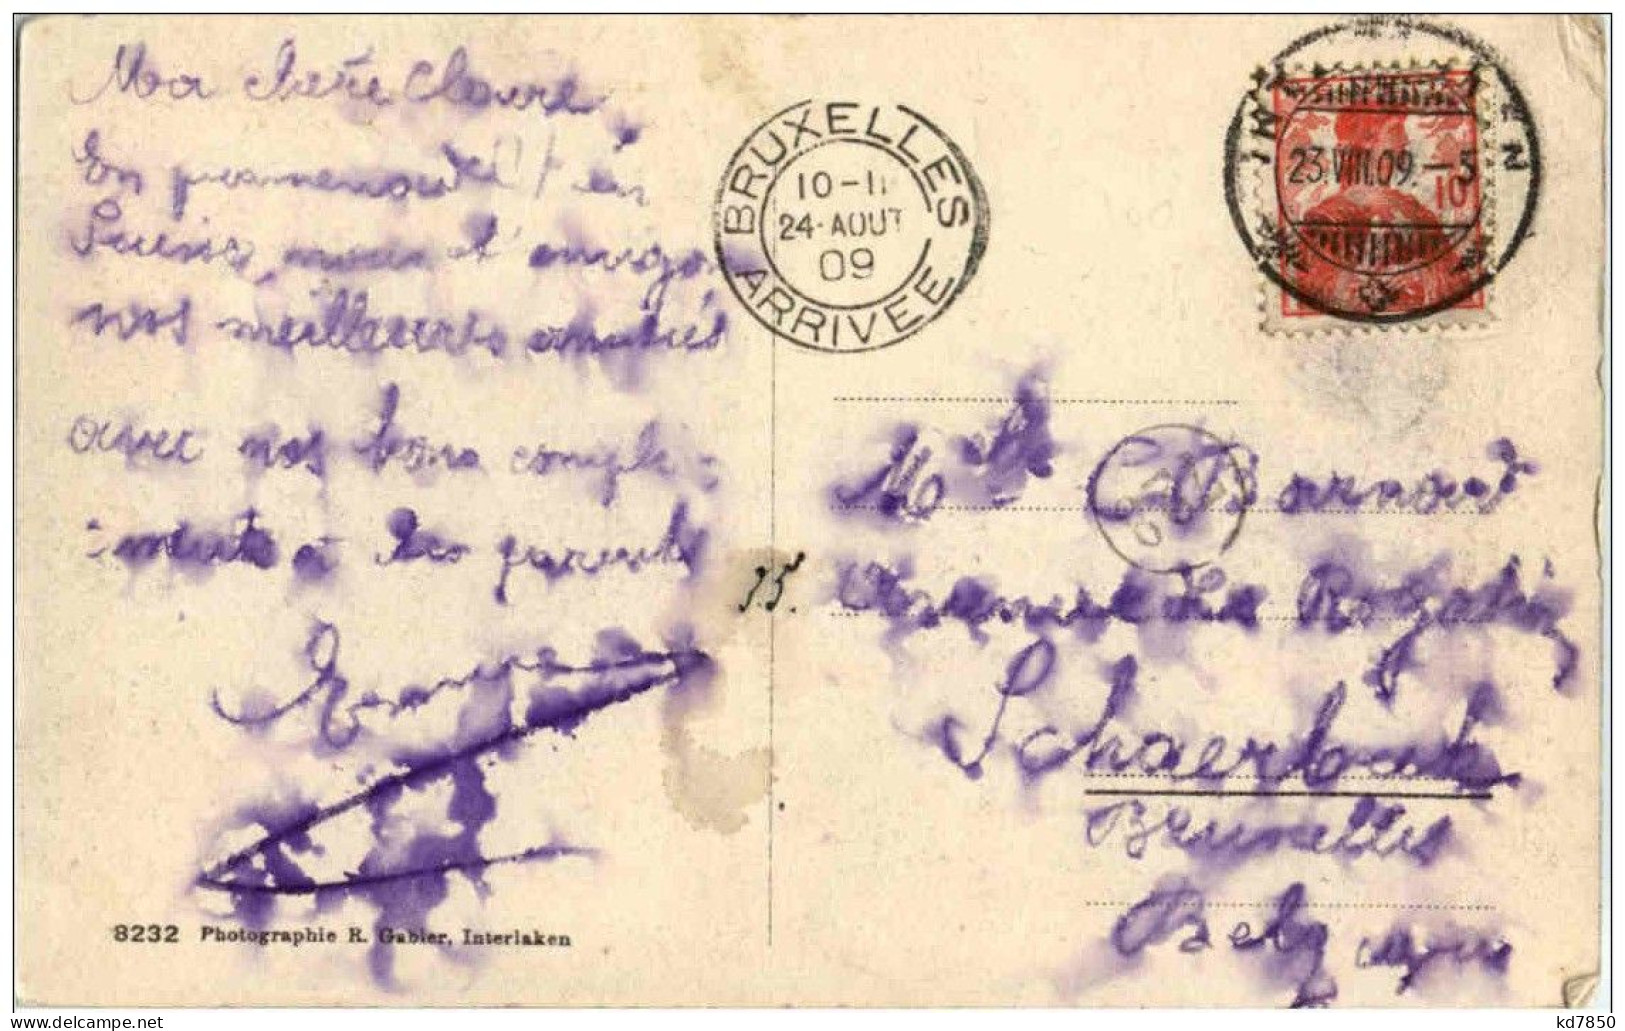 Ma chère Claire
En promenade en
Suisse, nous t'envoyons
nos meilleures amitiés
avec nos bons compli-
ments à tes parents
BRUXELLES
10-11
24·AOUT
09
ARRIVEE
23.VIII.09.–3
10
15.
Mlle C
Avenue Rogier
Schaerbeek
Bruxelles
Belgique
8232 Photographie R. Gabler, Interlaken
kd7850